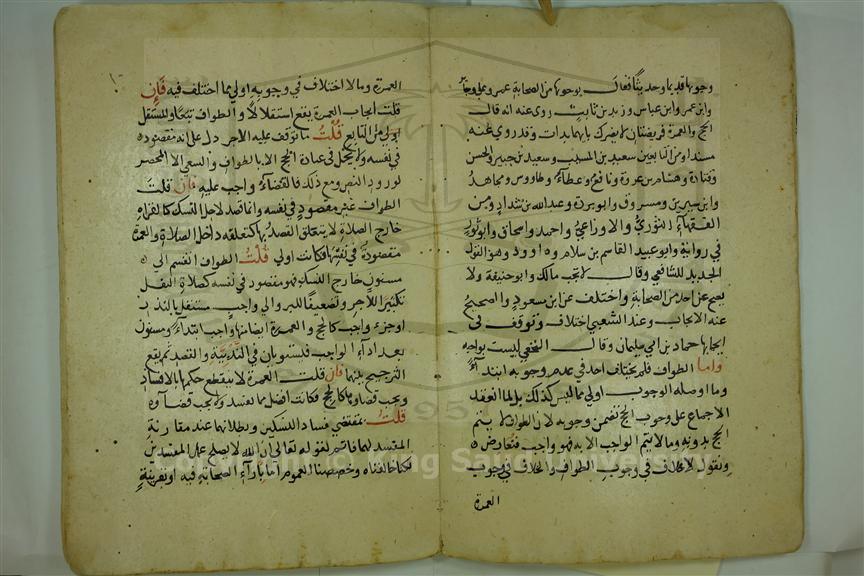 وجوبها قديما وحديثا فقال بوجوبها من الصحابة عمر وعلي وجابر
وابن عمر وابن عباس وزيد بن ثابت روى عنه انه قال
الحج والعمرة فريضتان لا يضرك بايهما بدات وقد روي عنه
مسندا ومن التابعين سعيد بن المسيب وسعيد بن جبير والحسن
وقتادة وهشام بن عروة ونافع وعطاء وطاووس ومجاهد
وابن سيرين ومسروق وابو بردة وعبد الله بن شداد ومن
الفقهاء الثوري والاوزاعي واحمد واسحاق وابو ثور
في رواية وابو عبيد القاسم بن سلام وداوود وهو القول
الجديد للشافعي وقال لا يجب مالك وابو حنيفة ولا
يصح عن احد من الصحابة واختلف عن ابن مسعود والصحيح
عنه الايجاب وعند الشعبي اختلاف وتوقف في
ايجابها حماد بن ابي سليمان وقال النخعي ليست بواجبه
واما الطواف فلم يختلف احد في عدم وجوبه ابتداء
وما اوصله الوجوب اولى مما ليس كذلك بل لما انعقد
الاجماع على وجوب الحج تضمن وجوبه لان الطواف لا يتم
الحج بدونه وما لا يتم الواجب الا به فهو واجب فتعارض
ونقول لا خلاف في وجوب الطواف والخلاف في وجوب
العمرة
العمرة وما لا اختلاف في وجوبه اولى مما اختلف فيه فان
قلت ايجاب العمرة يقع استقلالا والطواف تبعا والمستقل
اولى من التابع قلت ما توقف عليه الاجر دل على انه مقصوده
في نفسه ولا يحل في عبادة الحج الا بالطواف والسعي الا المحصر
لورود النص ومع ذلك فالقضاء واجب عليه فان قلت
الطواف غير مقصود في نفسه وانما قصد لاجل النسك كالقراءة
خارج الصلاة لا يتعلق القصد بها كتعلقه داخل الصلاة والعمرة
مقصودة في نفسها فكانت اولى قلت الطواف انقسم الى
مسنون خارج النسك فهو مقصود في نفسه كصلاة النفل
تكثيرا للاجر وتضعيفا للبر والى واجب مستقل بالنذر
او جزء واجب كالحج والعمرة ايضا منها واجب ابتداء ومسنون
بعد اداء الواجب فيستويان في النذرية والقصد ثم يقع
الترجيح بينهما فان قلت العمرة لا ينقطع حكمها بالافساد
ويجب قضاوها كالحج فكانت افضل مما يفسد ولا يجب قضاوه
قلت مقتضى فساد النسكين وبطلانهما عند مقارنة
المفسد لهما قائم لقوله تعالى ان الله لا يصلح عمل المفسدين
لكنا خالفناه وخصصنا العموم اما باراء الصحابة فيه او بقرينة